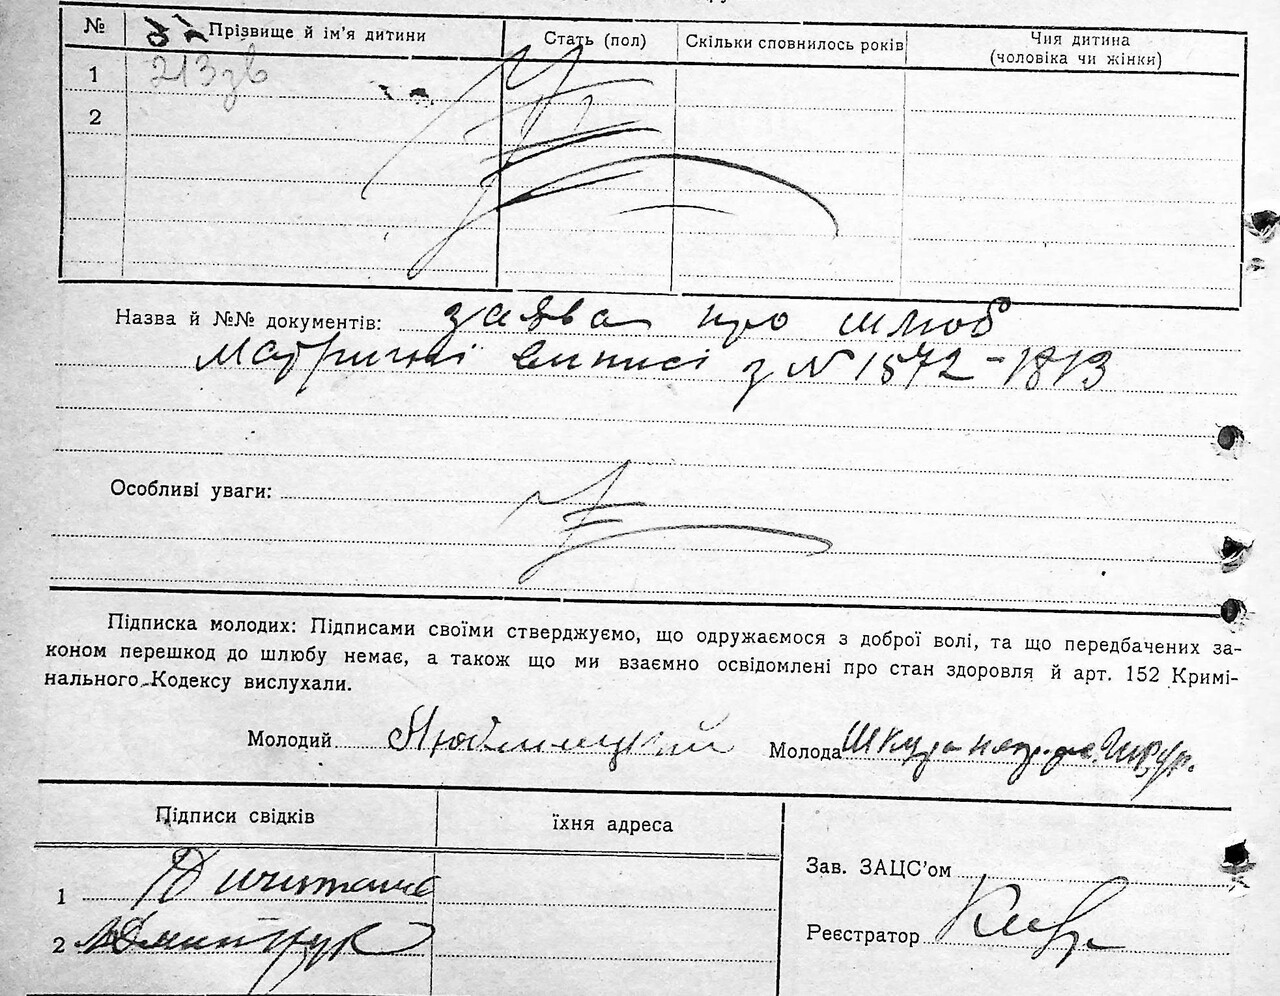 № Прізвище й ім'я дитини Стать (пол) Скільки сповнилось років Чия дитина
(чоловіка чи жінки)
1 213зв
2
Назва й №№ документів: заява про шлюб
Матричні виписі з N 1872-1873
Особливі уваги:
Підписка молодих: Підписами своїми стверджуємо, що одружаємося з доброї волі, та що передбачених за-
коном перешкод до шлюбу немає, а також що ми взаємно освідомлені про стан здоровля й арт. 152 Кримі-
нального Кодексу вислухали.
Молодий Молода
Підписи свідків їхня адреса
Зав. ЗАЦС'ом
1
2 Дмитрук
Реєстратор